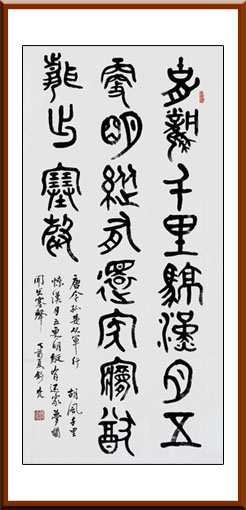 胡風千里驚漢月五
更明縱有還家夢猶
聞出塞聲
唐令狐楚從軍行 胡風千里
惊漢月五更明縱有還家夢猶
聞出塞聲 丁酉夏